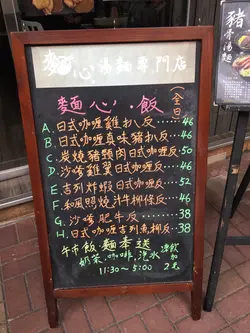 麵心湯麵專門店
麵心.飯(全日)
A.日式咖喱雞扒反...46
B.日式咖喱真味豬扒反..46
C.炭燒豬頸肉日式咖喱反..50
D.沙嗲雞翼日式咖喱反..46
E.吉列炸蝦日式咖喱反..52
F.和風照燒汁牛柳條反..46
G.沙嗲肥牛反......38
H.日式咖喱吉列魚柳反..38
午市飯.麵奉送
奶茶.咖啡.汽水
凍飲加2元
11:30~5:00
豬骨湯麵